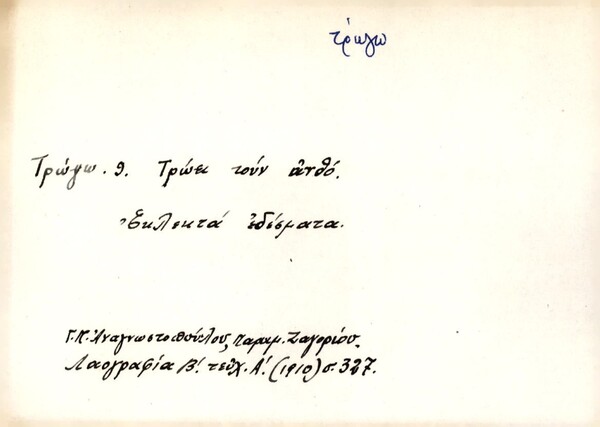 τρώγω
Τρώγω. 9. Τρώει τούν ἀνθό.
Ἐκλεκτά ἐδέσματα.
Γ. Π. Ἀναγνωστοπούλου, Παροιμ. Ζαγορίου.
Λαογραφία Β! τεῦχ. Α! (1910) σ. 327.